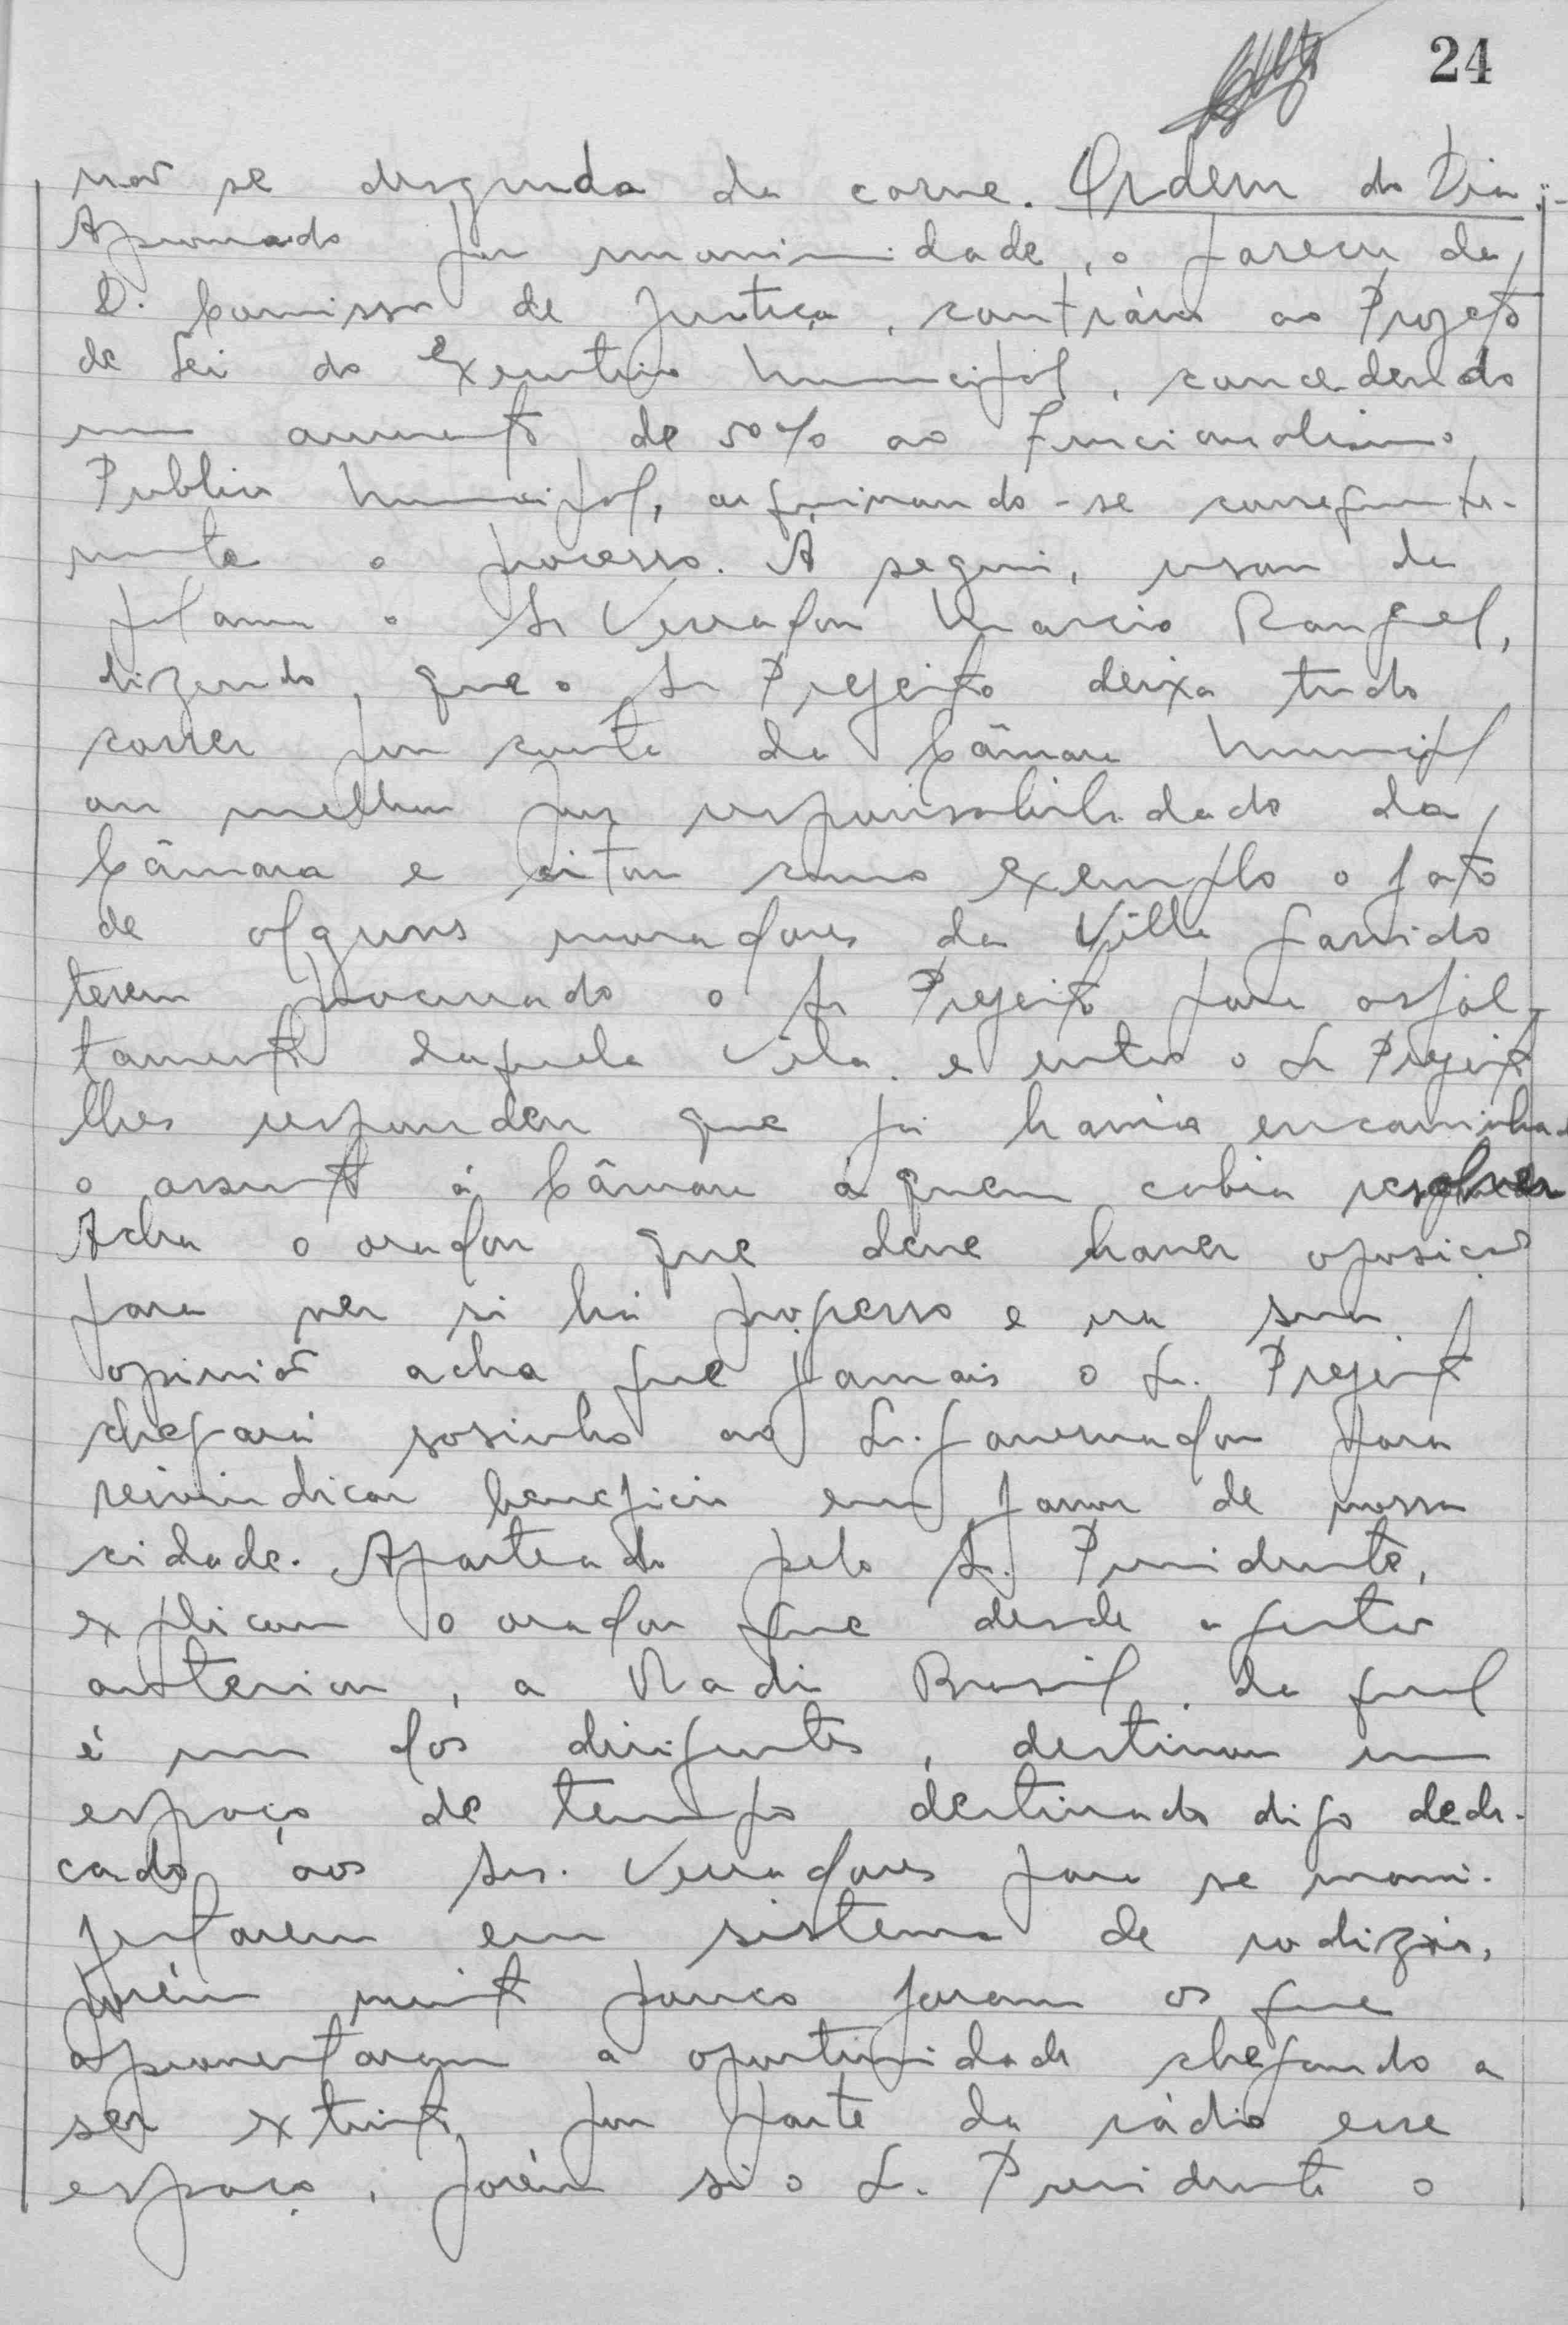 24
não se disgruda da carne. Ordem do Dia:-
Aprovado por unanimidade, o parecer da
D. Comissão de Justiça, contrário ao Projeto
de Lei do Executivo Municipal, concedendo
um aumento de 50% ao Funcionalismo
Publico Municipal, arquivando-se consequente-
mente o processo. A seguir, usou da
palavra o Sr Vereador Marcio Rangel,
dizendo, que o Sr Prefeito deixa tudo
correr por conta da Câmara Municipal
ou melhor por responsabilidade da
Câmara e citou como exemplo o fato
de alguns moradores da Villa Garrido
terem procurado o Sr Prefeito para asfal-
tamento daquela Vila. e então o Sr Prefeito
lhes respondeu que já havia encaminhado
o assunto á Câmara a quem cabia resolver
Acha o orador que deve haver oposição
para ver si há progresso e na sua
opinião acha que jamais o Sr. Prefeito
chegará sosinho ao Sr. Governador para
reivindicar beneficio em favor de nossa
cidade. Aparteado pelo Sr. Presidente,
explicou o orador que desde a gestão
anterior, a Radio Brasil, da qual
é um dos dirigentes, destinou um
espaço de tempo destinado digo dedi-
cado aos Srs. Vereadores para se mani-
festarem em sistema de rodizio,
porém muito pouco foram os que
aproveitaram a oportunidade chegando a
ser extinto por parte da rádio esse
espaço, porém si o Sr. Presidente o